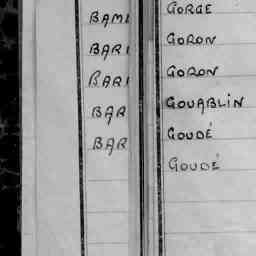 BAMI
BARI
BARI
BAR
BAR
GORGE
GORON
GORON
GOUABLIN
GOUDÉ
GOUDÉ